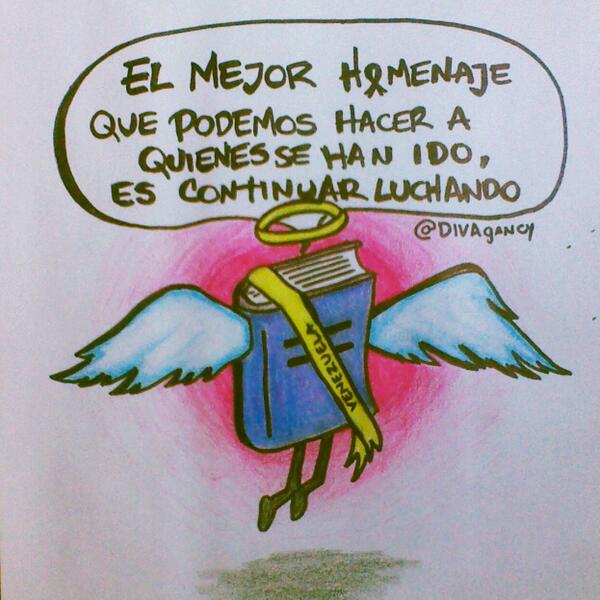 EL MEJOR HOMENAJE
QUE PODEMOS HACER A
QUIENES SE HAN IDO,
ES CONTINUAR LUCHANDO
@DIVAGANCY
VENEZUELA